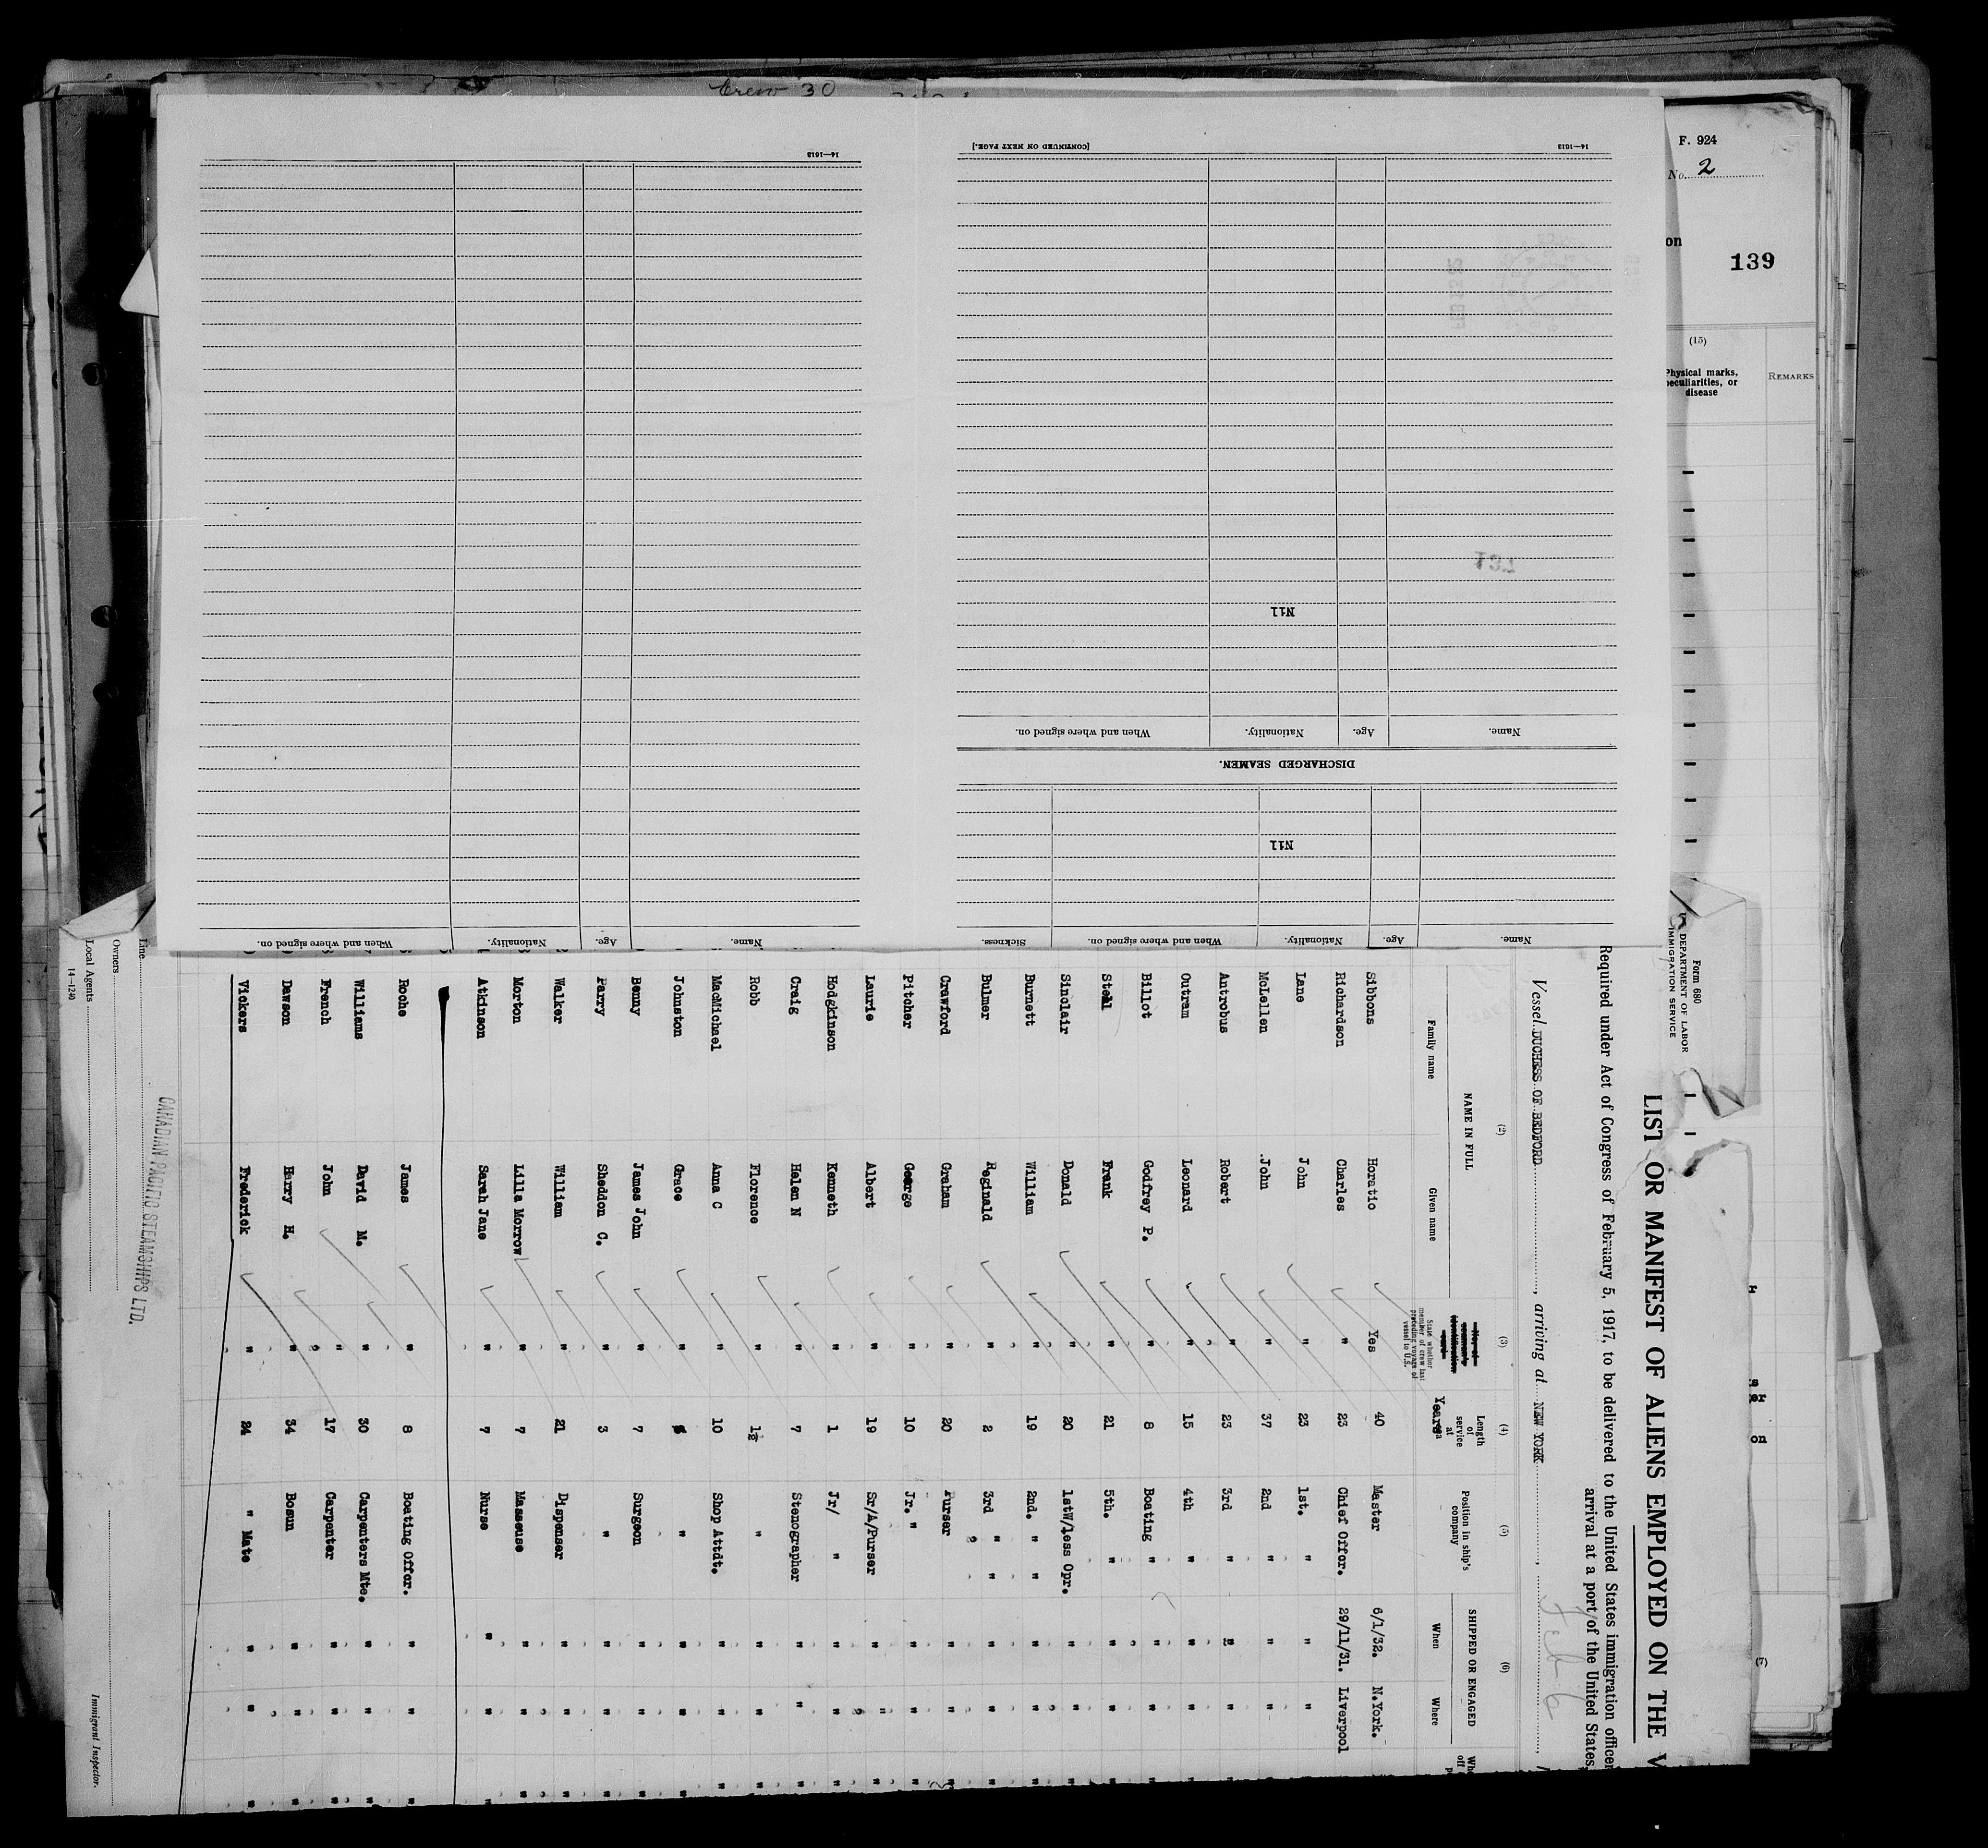 Crew 30
[CONTINUED ON NEXT PAGE.]
14—1613
14—1613
F. 924
No. 2
on
139
(15)
Physical marks, peculiarities, or disease
REMARKS
Nil
When and where signed on.
Nationality.
Age.
Name.
DISCHARGED SEAMEN.
Nil
Sickness.
When and where signed on.
Nationality.
Age.
Name.
When and where signed on.
Nationality.
Age.
Name.
Form 680
DEPARTMENT OF LABOR
IMMIGRATION SERVICE
LIST OR MANIFEST OF ALIENS EMPLOYED ON THE V
Required under Act of Congress of February 5, 1917, to be delivered to the United States immigration officer
arrival at a port of the United States.
Vessel DUCHESS OF BEDFORD, arriving at NEW YORK, Feb 6
(2) (3) (4) (5) (6)
NAME IN FULL
Family name Given name
State whether member of crew last preceding voyage of vessel to U.S.
Length of service at sea Years
Position in ship's company
SHIPPED OR ENGAGED
When Where
Sibbons Horatio Yes 40 Master 6/1/32. N.York.
Richardson Charles " 23 Chief Offcr. 29/11/31. Liverpool
Lane John " 23 1st. " " "
McLellen John " 37 2nd " " "
Antrobus Robert " 23 3rd " " "
Outram Leonard " 15 4th " " "
Billot Godfrey P. " 8 Boating " " "
Stell Frank " 21 5th. " " "
Sinclair Donald " 20 1stW/less Opr. " "
Burnett William " 19 2nd. " " " "
Bulmer Reginald " 2 3rd " " " "
Crawford Graham " 20 Purser " "
Pitcher George " 10 Jr. " " "
Laurie Albert " 19 Sr/A/Purser " "
Hodgkinson Kenneth " 1 Jr/ " " "
Craig Helen N " 7 Stenographer " "
Robb Florence " 1½ " " "
MacMichael Anna C " 10 Shop Attdt. " "
Johnston Grace " " " "
Benny James John " 7 Surgeon " "
Parry Sheddon C. " 3 " " "
Walker William " 21 Dispenser " "
Morton Lilla Morrow " 7 Masseuse " "
Atkinson Sarah Jane " 7 Nurse " "
Roche James " 8 Boating Offcr. " "
Williams David M. " 30 Carpenters Mte. " "
French John " 17 Carpenter " "
Dawson Harry H. " 34 Bosun " "
Vickers Frederick " 24 " Mate " "
CANADIAN PACIFIC STEAMSHIPS LTD.
Line
Owners
Local Agents
14—1240
Immigrant Inspector.